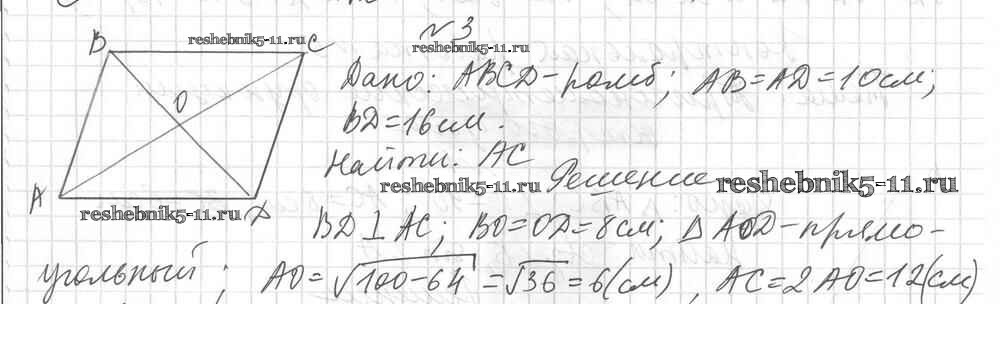 №3
reshebnik5-11.ru
B
reshebnik5-11.ru
C
O
Дано: ABCD-ромб; AB=AD=10см;
BD=16см.
Найти: AC
A
reshebnik5-11.ru
D
reshebnik5-11.ru
Решение
reshebnik5-11.ru
BD⊥AC; BO=OD=8см; △AOD-прямо-
угольный; AO=√100-64=√36=6(см), AC=2AO=12(см)